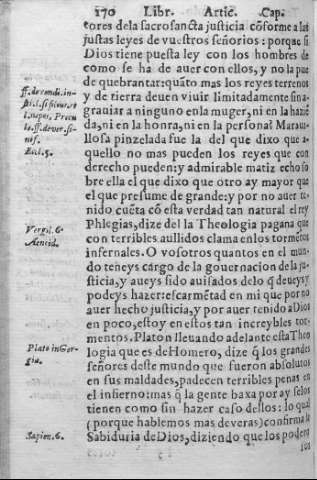 170 Libr. Artic. Cap.
tores dela sacrosancta justicia cõforme a las
justas leyes de vuestros señorios: porque si
Dios tiene puesta ley con los hombres de
como se ha de auer con ellos, y no la puede
de quebrantar: quãto mas los reyes terrenos
y de tierra deuen viuir limitadamente sin a-
grauiar a ninguno en la muger, ni en la haziẽ
da, ni en la honra, ni en la persona? Maraui-
llosa pinzelada fue la del que dixo que a-
quello no mas pueden los reyes que con
derecho pueden: y admirable matiz echo so
bre ella el que dixo que otro ay mayor que
el que presume de grande: y por no auer te-
nido cuẽta cõ esta verdad tan natural el rey
Phlegias, dize del la Theologia pagana que
con terribles aullidos clama en los tormẽtos
infernales. O vosotros quantos en el mun-
do teneys cargo de la gouernacion de la ju-
sticia, y aueys sido auisados delo q̃ deueys y
podeys hazer: escarmẽtad en mi que por no
auer hecho justicia, y por auer tenido a Dios
en poco, estoy en estos tan increybles tor-
mentos. Platon lleuando adelante esta Theo
logia que es de Homero, dize q̃ los grandes
señores deste mundo que fueron absolutos
en sus maldades, padecen terribles penas en
el infierno: mas q̃ la gente baxa por ay se los
tienen como sin hazer caso dellos: lo qual
(porque hablemos mas deveras) confirma la
Sabiduria de Dios, diziendo que los podero
Vergil. 6.
Aeneid.
Plato in Gor-
gia.
Sapien. 6.